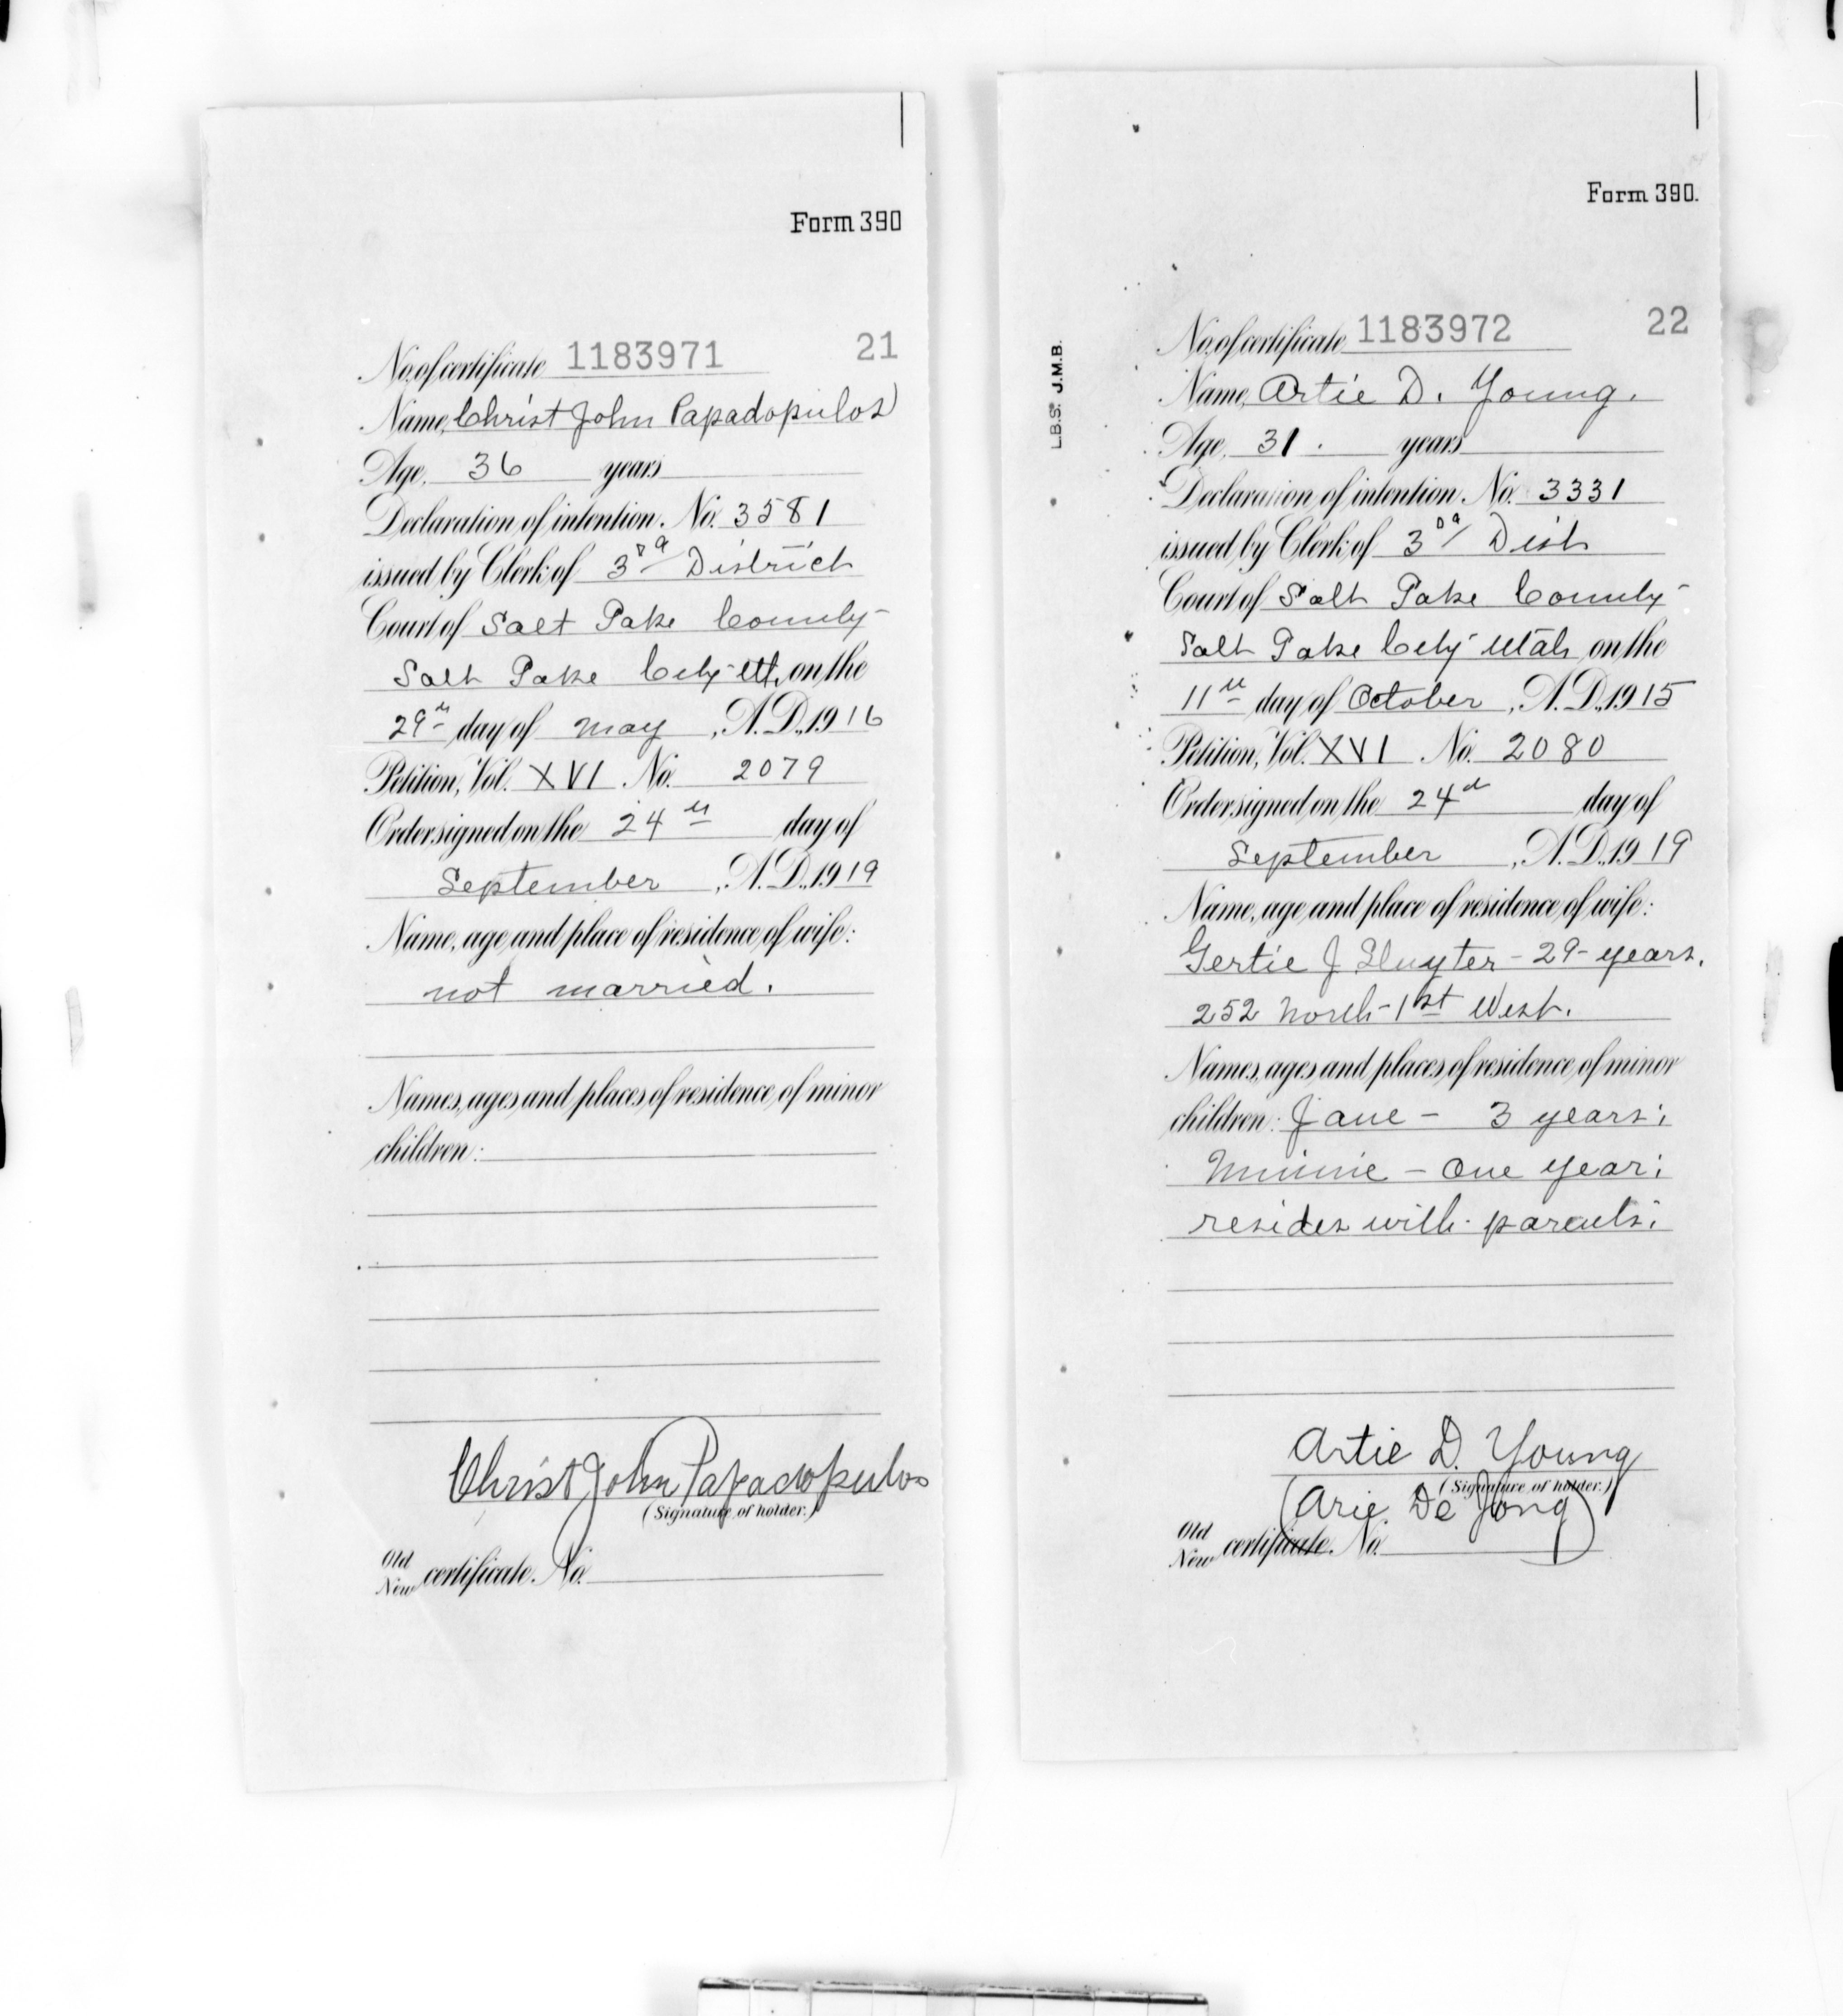 Form 390
No. of certificate 1183971 21
Name, Christ John Papadopulos
Age, 36 years
Declaration of intention. No. 3581
issued by Clerk of 3rd District
Court of Salt Lake County
Salt Lake City Ut, on the
29th day of May, A.D., 1916
Petition, Vol. XVI No. 2079
Order signed on the 24th day of
September, A.D., 1919
Name, age and place of residence of wife:
not married.
Names, ages and places of residence of minor
children:
Christ John Papadopulos
(Signature of holder.)
Old
New certificate. No.
Form 390.
L.B.S. J.M.B.
No. of certificate 1183972 22
Name, Artie D. Young.
Age, 31. years
Declaration of intention. No. 3331
issued by Clerk of 3rd Dist
Court of Salt Lake County
Salt Lake City Utah, on the
11th day of October, A.D., 1915
Petition, Vol. XVI No. 2080
Order signed on the 24th day of
September, A.D., 1919
Name, age and place of residence of wife:
Gertie J Sluyter - 29 - years.
252 North - 1st West.
Names, ages and places of residence of minor
children: Jane - 3 years;
Minnie - One year;
resides with parents;
Artie D. Young
(Signature of holder.)
(Arie De Jong)
Old
New certificate. No.